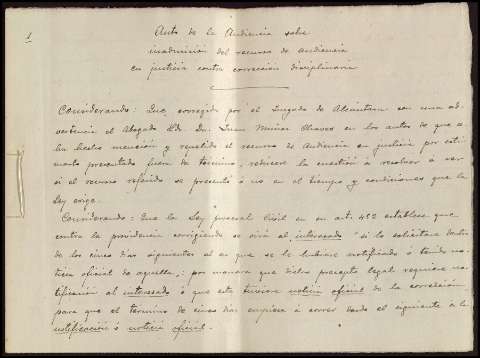 1
Auto de la Audiencia sobre
inadmisión del recurso de audiencia
en justicia contra corrección disciplinaria
Considerando: Que corregido por el Juzgado de Alcántara con una ad-
vertencia el Abogado Ldo. Dn. Juan Muñoz Chaves en los autos de que se
ha hecho mención y repelido el recurso de audiencia en justicia por esti-
marlo presentado fuera de término, redúcese la cuestión á resolver á ver
si el recurso referido se presentó ó no en el tiempo y condiciones que la
Ley exige.
Considerando: Que la Ley procesal Civil en su art. 452 establece que
contra la providencia corrigiendo se oirá al interesado "si lo solicitare dentro
de los cinco días siguientes al en que se le hubiere notificado ó tenido no-
ticia oficial de aquella"; por manera que dicho precepto legal requiere no-
tificación al interesado ó que este tuviere noticia oficial de la corrección,
para que el término de cinco días empiece á correr desde el siguiente á la
notificación ó noticia oficial.